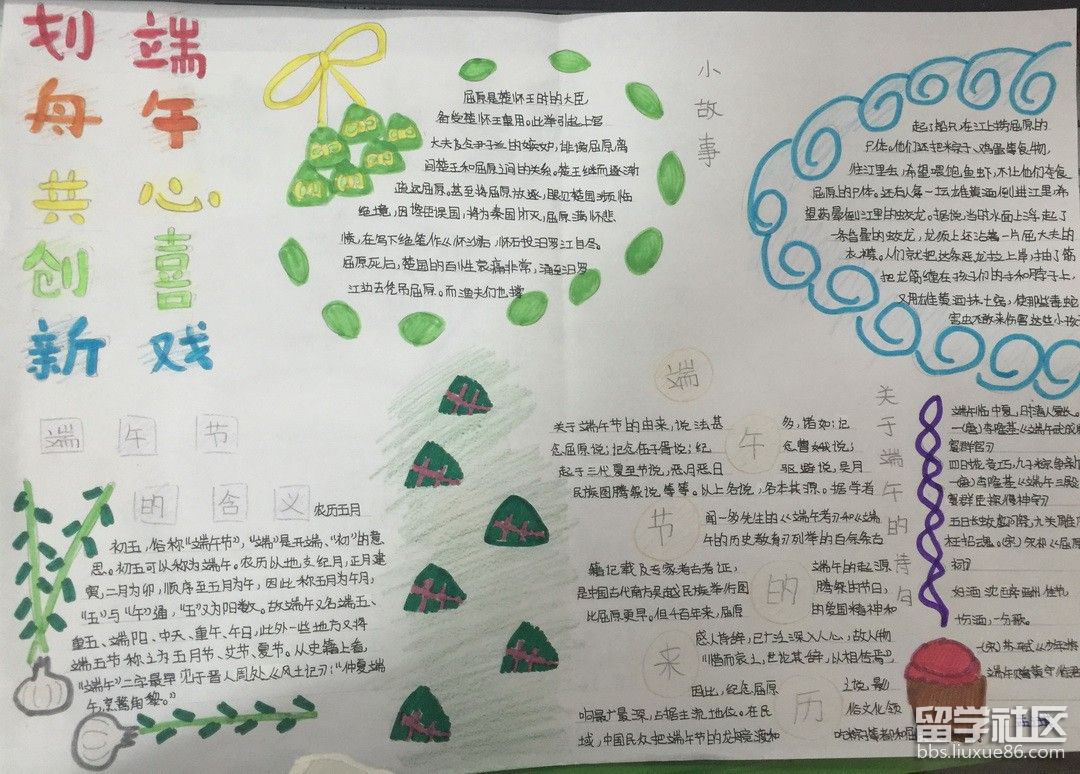 划 端
舟 午
共 心
创 喜
新 戏
小故事
屈原是楚怀王时的大臣
备受楚怀王重用。此举引起上官
大夫及令子兰的嫉妒,排挤屈原,离
间楚王和屈原之间的关系。楚王继而逐渐
疏远屈原。甚至将屈原放逐,眼见楚国濒临
绝境,因馋臣误国,将为秦国所灭,屈原满怀悲
愤,在写下绝笔作《怀沙》后,怀石投汨罗江自尽。
屈原死后,楚国的百姓哀痛非常,涌至汨罗
江边去凭吊屈原。而渔夫们也撑
起了船只,在江上捞屈原的
尸体。他们还把粽子、鸡蛋等食物,
往江里丢,希望喂饱鱼虾,不让他们夺食
屈原的尸体。还有人拿一坛雄黄酒倒进江里,希
望药晕倒江里的蛟龙。据说,当时水面上浮起了
一条昏晕的蛟龙,龙须上还沾着一片屈大夫的
衣襟。人们就把这条恶龙拉上岸,抽了筋
把龙筋缠在孩子们的手和脖子上,
又用雄黄酒抹七窍,使那些毒蛇
害虫不敢来伤害这些小孩
端午节
的含义
农历五月
初五,俗称“端午节”,“端”是开端、“初”的意
思。初五可以称为端午。农历以地支纪月,正月建
寅,二月为卯,顺序至五月为午,因此称五月为午月,
“五”与“午”通,“五”又为阳数。故端午又名端五、
重五、端阳、中天、重午、午日,此外一些地方又将
端五节称之为五月节、艾节、夏节。从史籍上看,
“端午”二字最早见于晋人周处《风土记》:“仲夏端
午,烹鹜角黍。”
端午节的来历
关于端午节的由来,说法甚多,诸如:纪
念屈原说;纪念伍子胥说;纪念曹娥说;
起于三代夏至节说,恶月恶日驱避说,是月
民族图腾祭说等等。以上各说,各本其源。据学者
闻一多先生的《端午考》和《端
午的历史教育》列举的百余条古
籍记载及专家考古考证,端午的起源
是中国古代南方吴越民族举行图腾祭的节日,
比屈原更早。但千百年来,屈原的爱国精神和
感人诗辞,已广泛深入人心,故人们
“惜而哀之,世论其辞,以相传焉”,
因此,纪念屈原之说,影
响最广最深,占据主流地位。在民俗文化领
域,中国民众把端午节的龙舟竞渡和吃粽子等都和
关于端午的诗句
端午临中夏,时清人复长。
复群官》
四时花竞巧,九子粽争新
五日长蛇
好酒沈醉酬佳节,
十分酒,一分歌。
留学社区
bbs.liuxue86.com